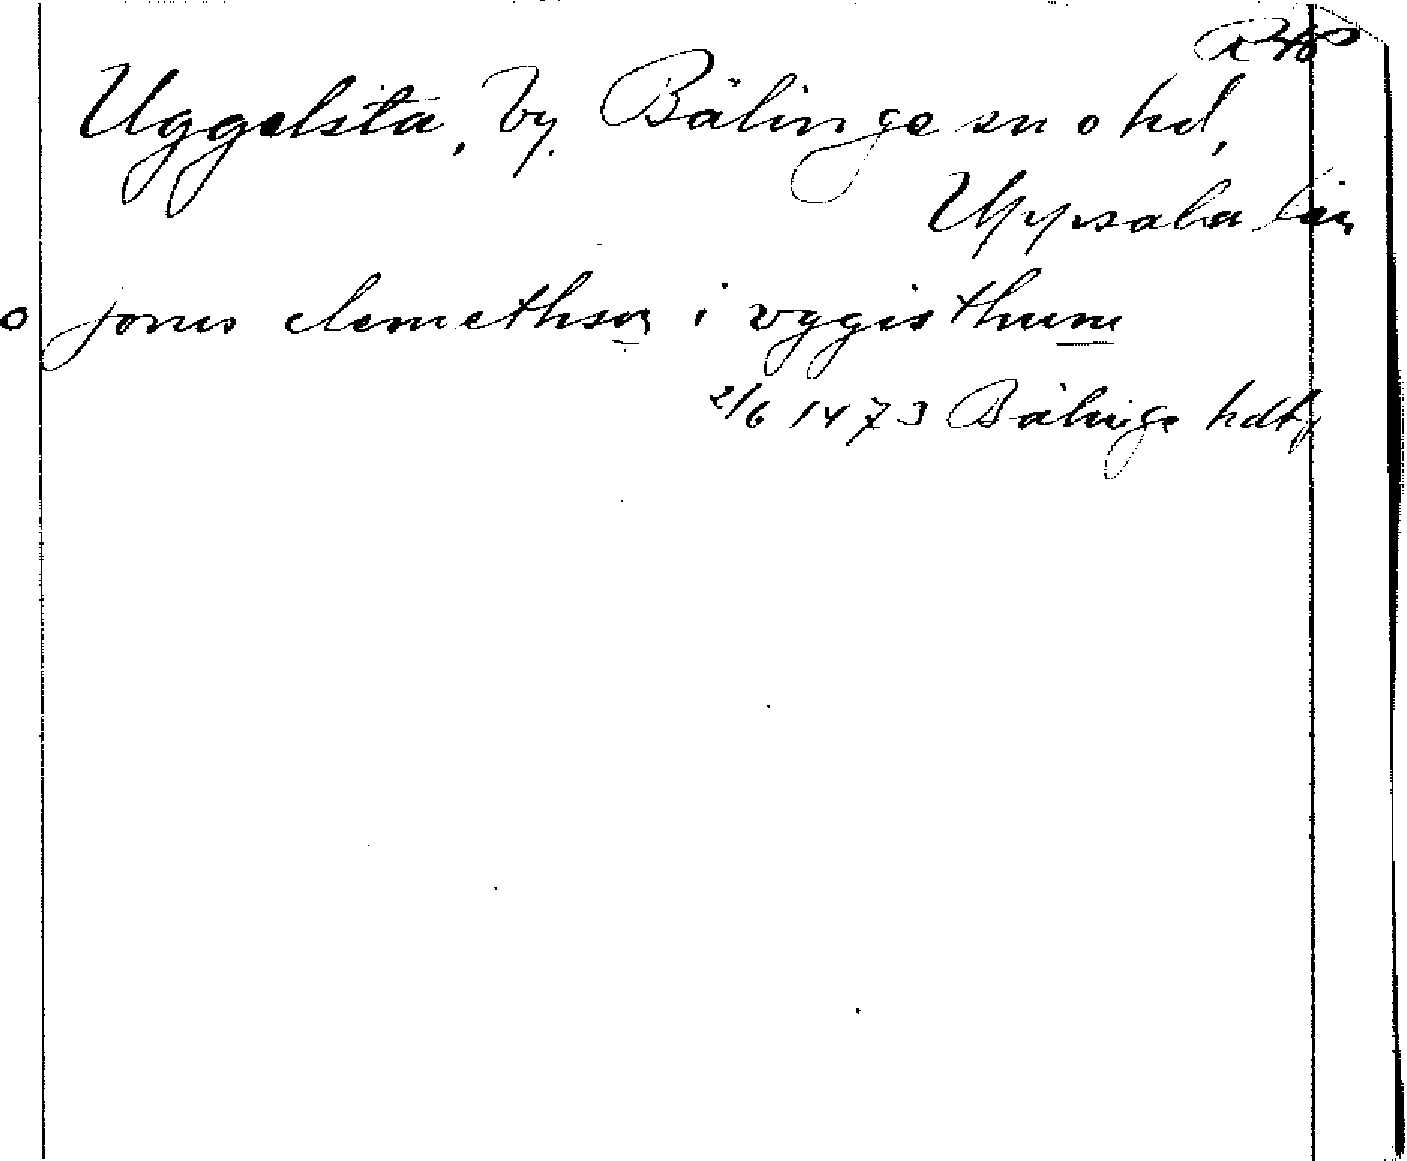 Uggelsta, by. Bälinge sn o hd,
Uppsala län
o jonis clemethson i vggisthum
2/6 1473 Bälinge hdtg